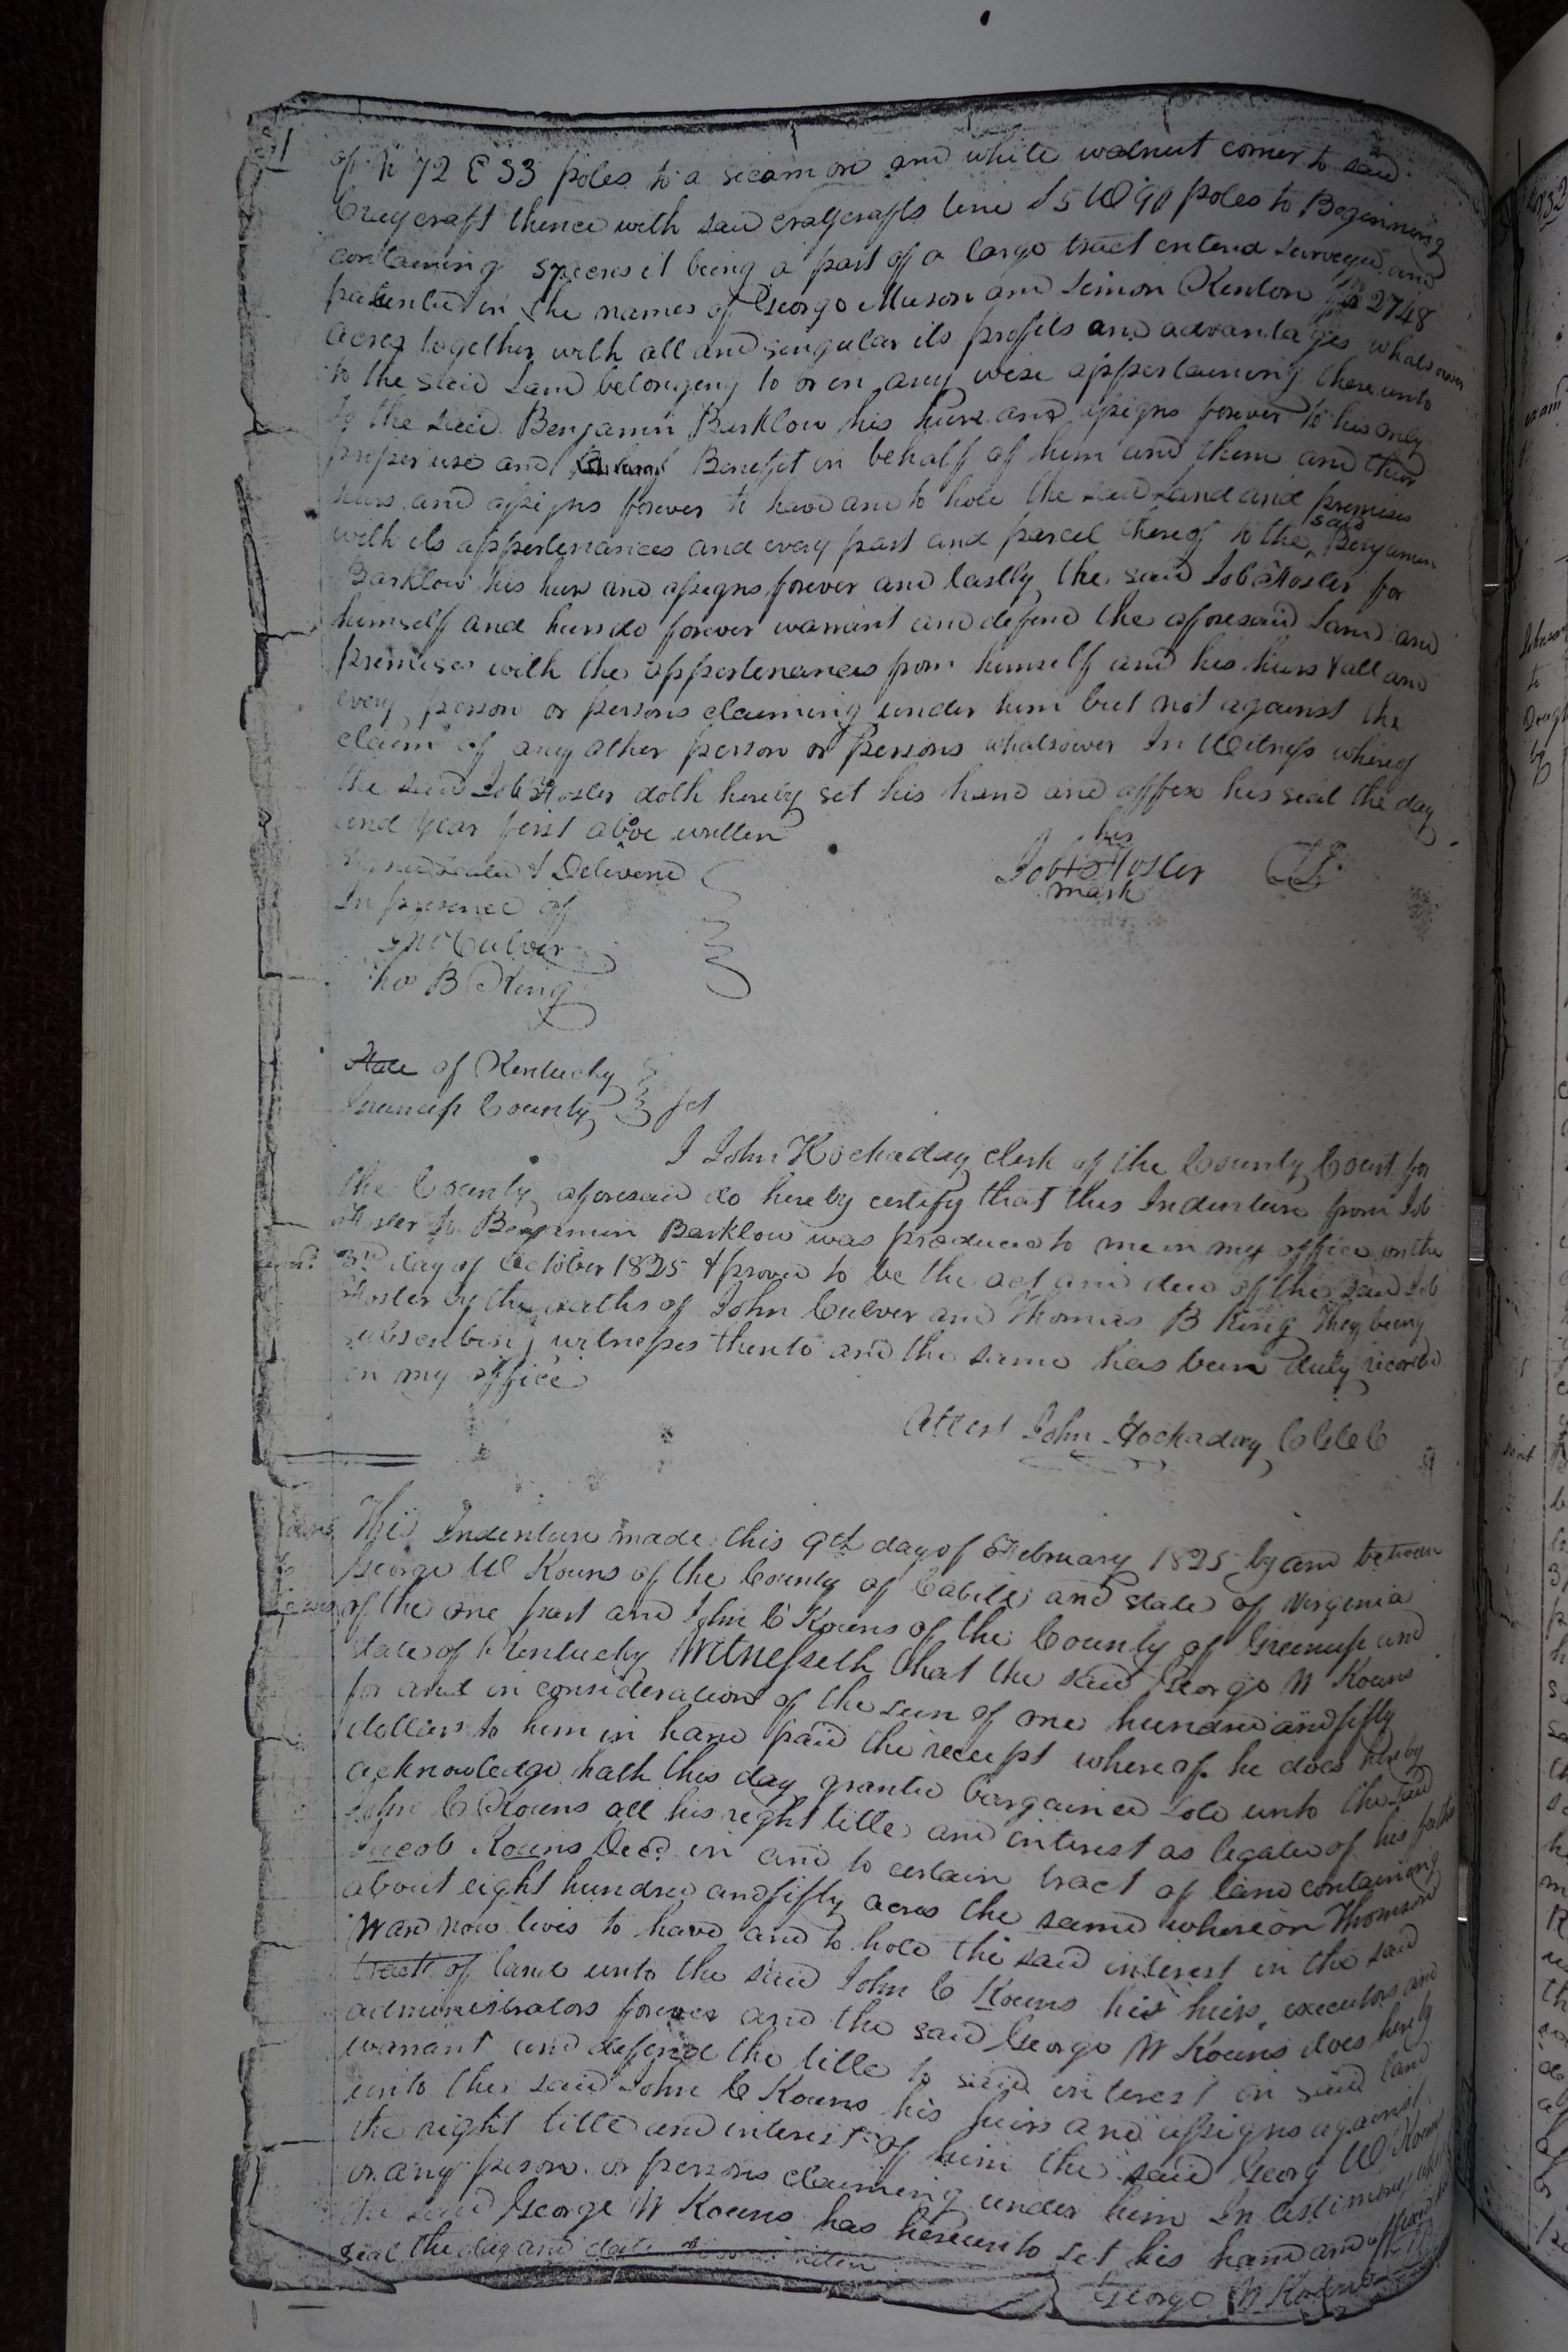 of N 72 E 33 poles to a sicamore and white walnut corner to said
Craycraft thence with said craycrafts line S 5 W 90 poles to Beginning
containing acres it being a part of a large tract enterd surveyed and
patented in the names of George Mason and Simon Kenton for 2748
acres together with all and singular its profits and advantages whatsoever
to the said Land belonging to or in any wise appertaining there unto
to the said Benjamin Barklow his heirs and assigns forever to his only
proper use and Benefit in behalf of him and them and their
heirs and assigns forever to have and to hold the said Land and premises
with its appertenances and every part and parcel thereof to the said Benjamin
Barklow his heirs and assigns forever and lastly the said Job Foster for
himself and heirs do forever warrant and defend the aforesaid Land and
premises with the appertenances from himself and his heirs & all and
every person or persons claiming under him but not against the
claim of any other person or persons whatsoever In Witness whereof
the said Job Foster doth hereby set his hand and affix his seal the day
and year first above written
Signed Sealed & Delivered
In presence of
Jno Culver
Thos B King
his
Job Foster
mark
State of Kentucky
Greenup County Sct
I John Hockaday clerk of the County Court for
the County aforesaid do hereby certify that this Indenture from Job
Foster to Benjamin Barklow was produced to me in my office on the
3rd day of October 1825 & proved to be the act and deed of the said Job
Foster by the oaths of John Culver and Thomas B King they being
subscribing witnesses thereto and the same has been duly recorded
in my office
Attest John Hockaday C G C C
This Indenture made this 9th day of February 1825 by and between
George W Kouns of the County of Cabell and state of Virginia
of the one part and John C Kouns of the County of Greenup and
State of Kentucky Witnesseth that the said George W Kouns
for and in consideration of the sum of one hundred and fifty
dollars to him in hand paid the receipt whereof he does hereby
acknowledge hath this day granted bargained sold unto the said
John C Kouns all his right title and interest as legatee of his father
Jacob Kouns Decd in and to certain tract of land containing
about eight hundred and fifty acres the same whereon Thomson
Ward now lives to have and to hold the said interest in the said
tract of land unto the said John C Kouns his heirs, executors and
administrators forever and the said George W Kouns does hereby
warrant and defend the title to said interest in said land
unto the said John C Kouns his heirs and assigns against
the right title and interest of him the said Georg W Kouns
or any person or persons claiming under him In testimony whereof
the said George W Kouns has hereunto set his hand and affixed his
seal the day and date written
George W Kouns